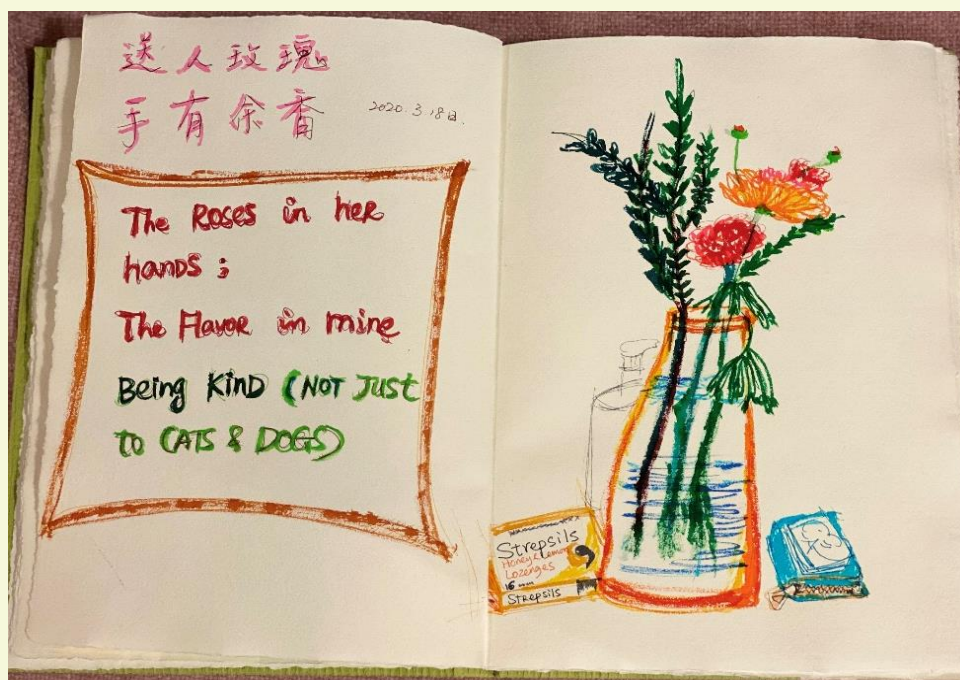 送人玫瑰
手有余香
2020.3.18日.
The Roses in her
hands;
The Flavor in mine
Being Kind (NOT JUST
to CATS & DOGS)
Strepsils
Honey & Lemon
Lozenges
16
Strepsils